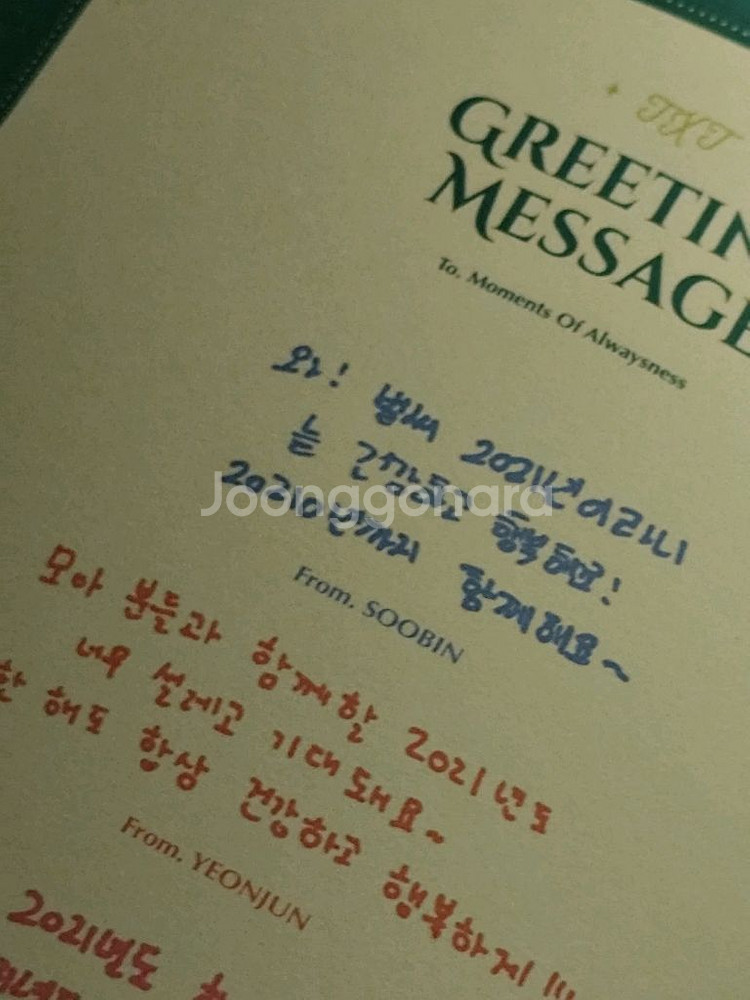 TXT
GREETIN
MESSAGE
To. Moments Of Alwaysness
와! 벌써 2021년이라니
늘 감사하고 행복해요!
까지 함께해요~
From. SOOBIN
모아 분들과 함께할 2021년도
너무 설레고 기대돼요~
한 해도 항상 건강하고 행복하게!!!
From. YEONJUN
2021년도
Joonggonara